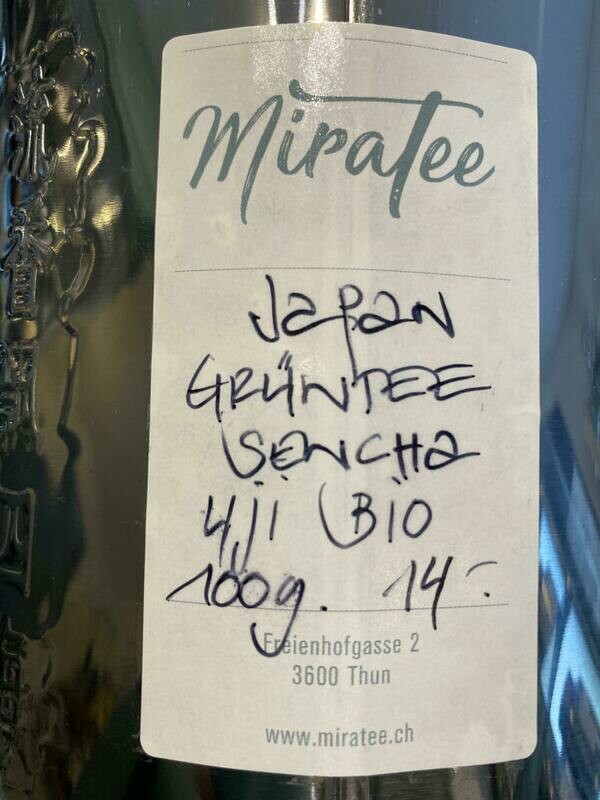 Miratee
Japan
GRÜNTEE
SENCHa
Uji BIO
100g. 14.-
Freienhofgasse 2
3600 Thun
www.miratee.ch